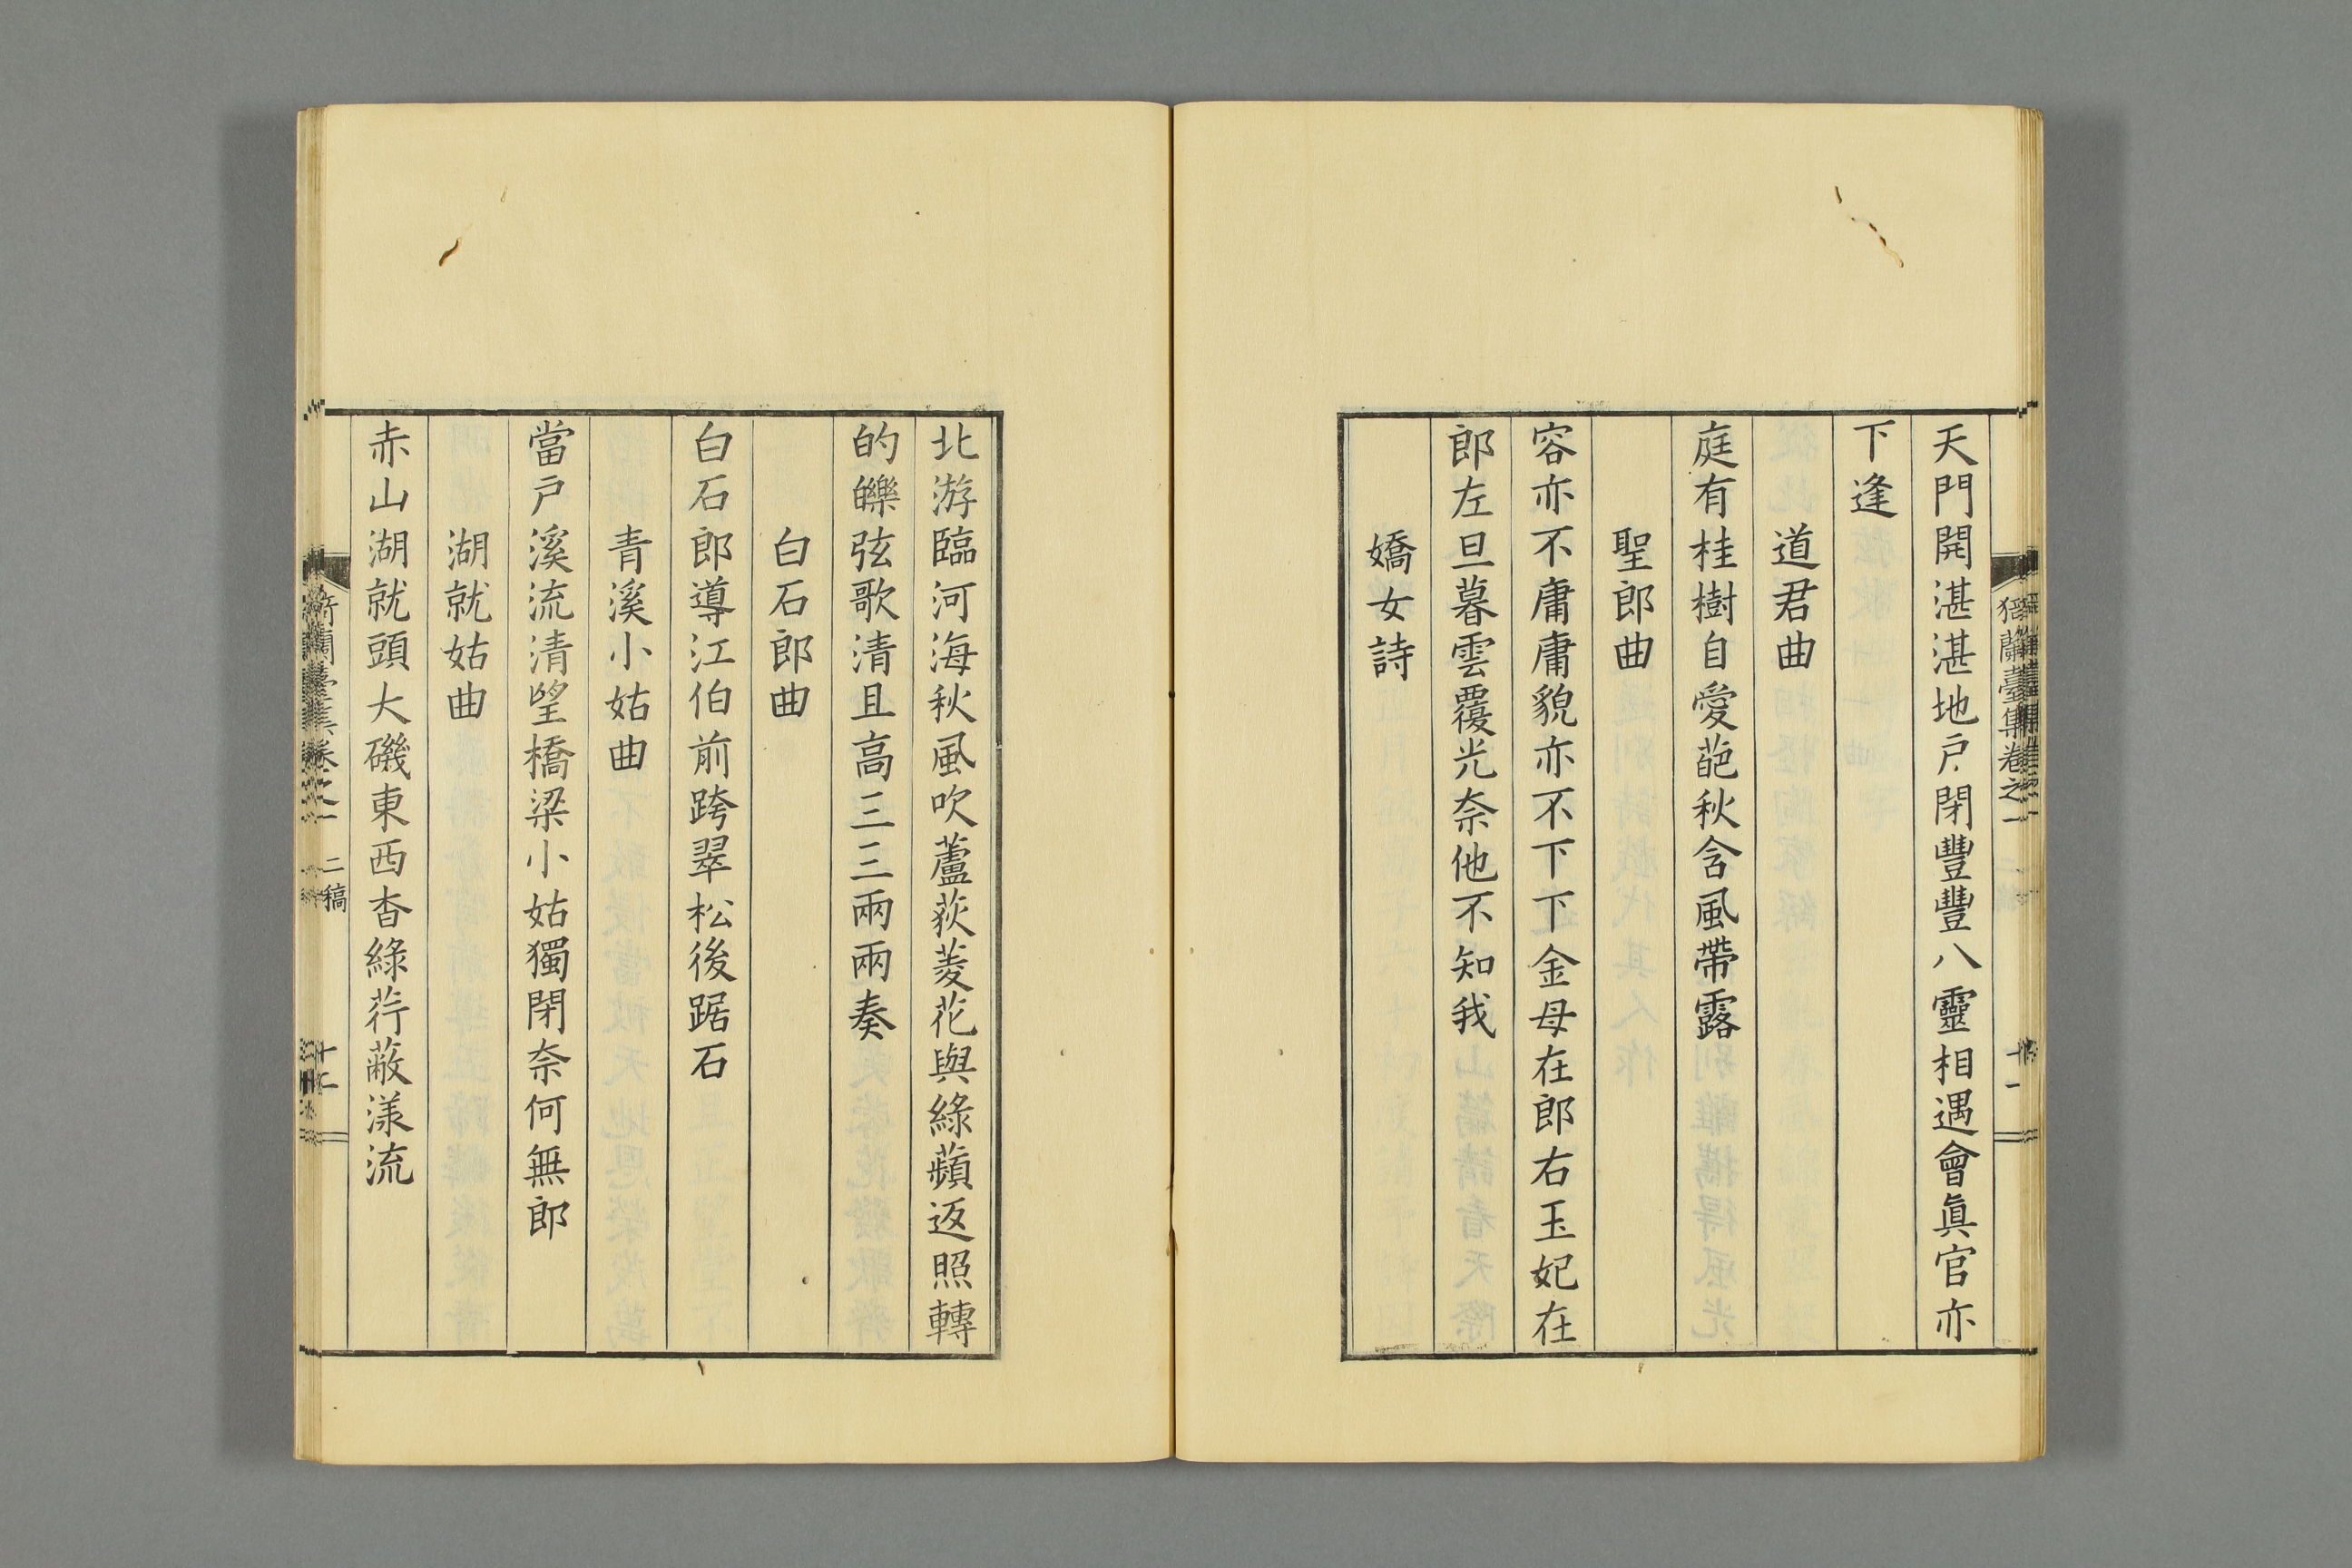 天門開湛湛地戸閉豐豐八靈相遇會眞官亦
下逢
道君曲
庭有桂樹自愛葩秋含風帶露
聖郎曲
容亦不庸庸貌亦不下下金母在郎右玉妃在
郎左旦暮雲覆光奈他不知我
嬌女詩
北游臨河海秋風吹蘆荻菱花與綠蘋返照轉
的皪弦歌清且高三三兩兩奏
白石郎曲
白石郎導江伯前跨翠松後踞石
青溪小姑曲
當戸溪流清望橋梁小姑獨閉奈何無郎
湖就姑曲
赤山湖就頭大磯東西杳綠荇蔽漾流
蘭臺集卷之一
二稿